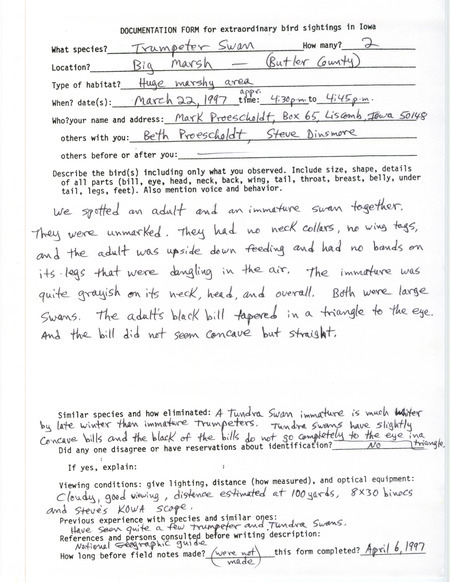 DOCUMENTATION FORM for extraordinary bird sightings in Iowa
What species? Trumpeter Swan How many? 2
Location? Big Marsh — (Butler County)
Type of habitat? Huge marshy area
When? date(s): March 22, 1997 appr. time: 4:30 p.m. to 4:45 p.m.
Who?your name and address: Mark Proescholdt, Box 65, Liscomb, Iowa 50148
others with you: Beth Proescholdt, Steve Dinsmore
others before or after you:
Describe the bird(s) including only what you observed. Include size, shape, details
of all parts (bill, eye, head, neck, back, wing, tail, throat, breast, belly, under
tail, legs, feet). Also mention voice and behavior.
We spotted an adult and an immature swan together.
They were unmarked. They had no neck collars, no wing tags,
and the adult was upside down feeding and had no bands on
its legs that were dangling in the air. The immature was
quite grayish on its neck, head, and overall. Both were large
swans. The adult's black bill tapered in a triangle to the eye.
And the bill did not seem concave but straight.
Similar species and how eliminated: A Tundra Swan immature is much whiter
by late winter than immature Trumpeters. Tundra Swans have slightly
concave bills and the black of the bills do not go completely to the eye in a
Did any one disagree or have reservations about identification? No triangle.
If yes, explain:
Viewing conditions: give lighting, distance (how measured), and optical equipment:
Cloudy, good viewing, distance estimated at 100 yards, 8x30 binocs
and Steve's KOWA scope.
Previous experience with species and similar ones:
Have seen quite a few Trumpeter and Tundra Swans.
References and persons consulted before writing description:
National Geographic guide
How long before field notes made? (were not made) this form completed? April 6, 1997